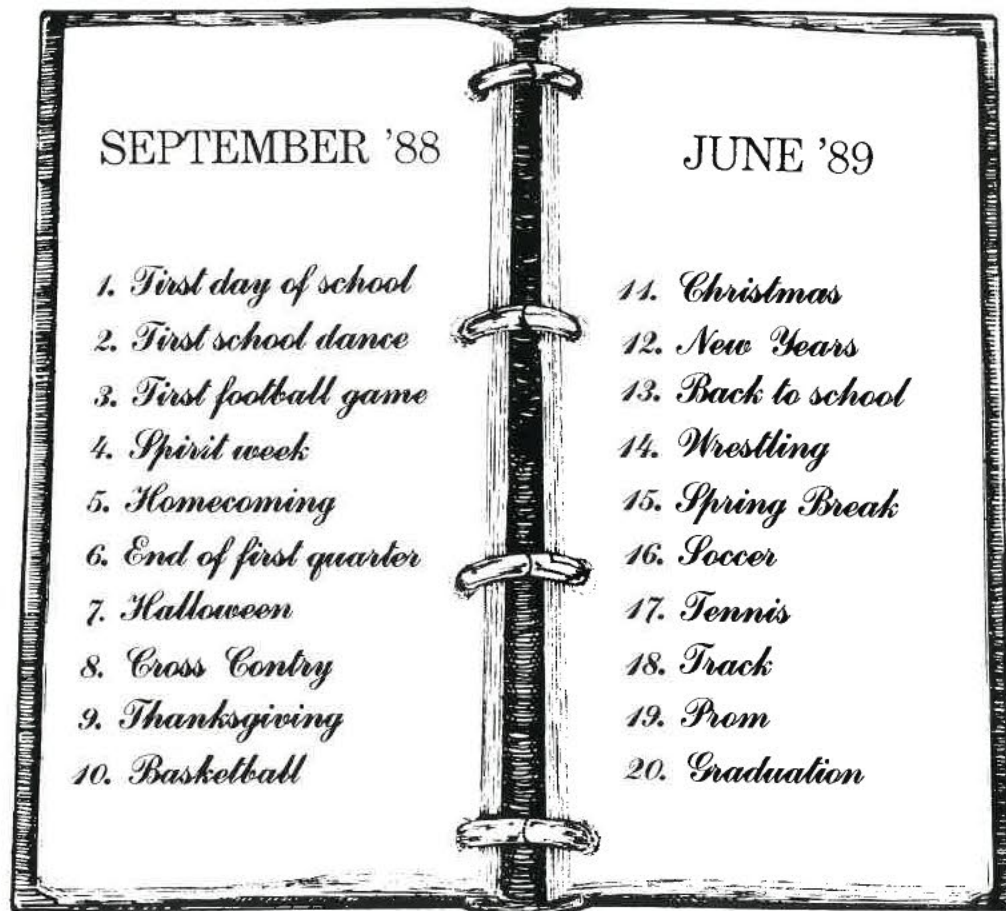 SEPTEMBER '88
1. First day of school
2. First school dance
3. First football game
4. Spirit week
5. Homecoming
6. End of first quarter
7. Halloween
8. Cross Contry
9. Thanksgiving
10. Basketball
JUNE '89
11. Christmas
12. New Years
13. Back to school
14. Wrestling
15. Spring Break
16. Soccer
17. Tennis
18. Track
19. Prom
20. Graduation